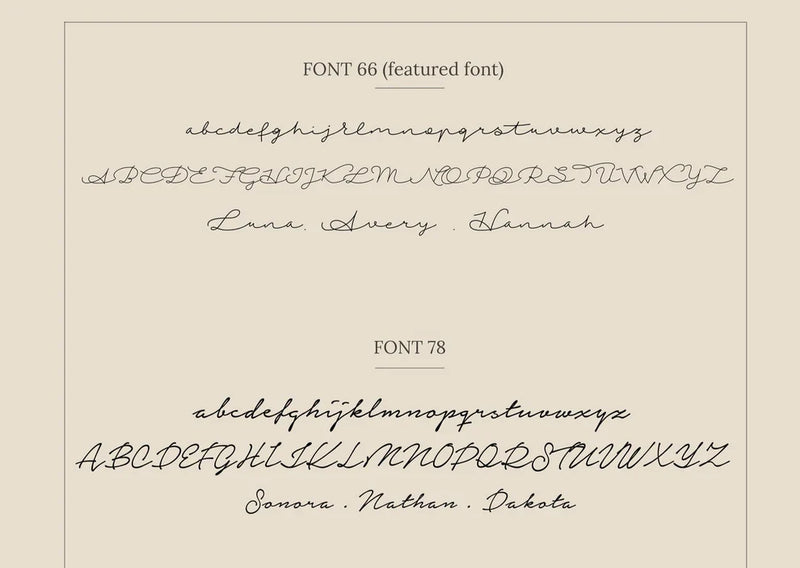 FONT 66 (featured font)
abcdefghijklmnopqrstuvwxyz
ABCDEFGHIJKLMNOPQRSTUVWXYZ
Luna. Avery . Hannah
FONT 78
abcdefghijklmnopqrstuvwxyz
ABCDEFGHIJKLMNOPQRSTUVWXYZ
Sonora . Nathan . Dakota